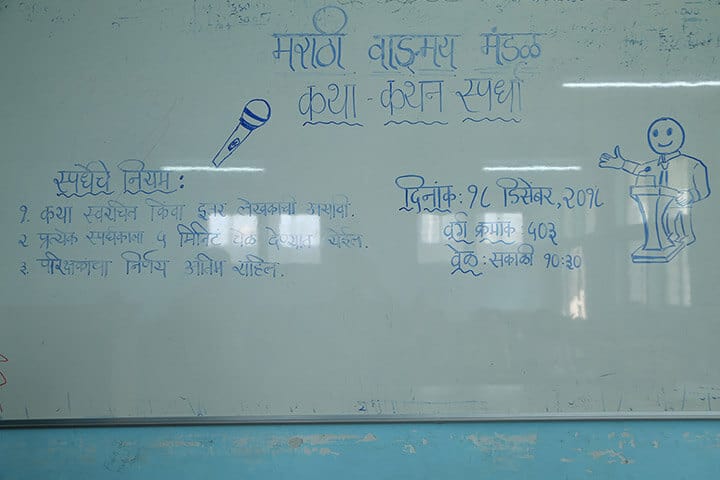 मराठी वाङ्मय मंडळ
कथा - कथन स्पर्धा
स्पर्धेचे नियम :
१. कथा स्वरचित किंवा इतर लेखकाची असावी.
२ प्रत्येक स्पर्धकाला ५ मिनिटं वेळ देण्यात येईल.
३. परिक्षकांचा निर्णय अंतिम राहिल.
दिनांक : १८ डिसेंबर, २०१८
वर्ग क्रमांक : ५०३
वेळ : सकाळी १०:३०